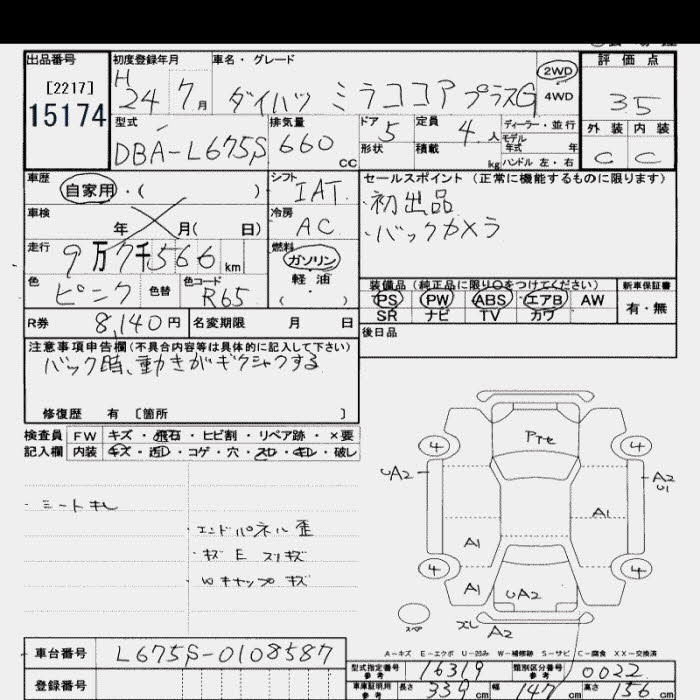 出品番号
[2217]
15174
初度登録年月
H 24 7 月
車名・グレード
ダイハツ ミラココア プラスG
2WD
4WD
評価点
35
型式
DBA-L675S
排気量
660 cc
ドア 5
形状
定員 4. 人
積載 kg
ディーラー・並行
モデル年式 年
ハンドル 左・右
外装 内装
C C
車歴
自家用・( )
シフト
IAT
車検
年 月( 日)
冷房
AC
走行
9万7千566 km
燃料
ガソリン
軽油
( )
色
ピンク
色替
色コード
R65
セールスポイント (正常に機能するものに限ります)
・初出品
・バックカメラ
装備品 (純正品に限り○をつけてください)
新車保証書
PS PW ABS エアB AW
SR ナビ TV カワ
有・無
R券 8,140円
名変期限 月 日
後日品
注意事項申告欄(不具合内容等は具体的に記入して下さい)
バック時、動きがギクシャクする
修復歴 有 [箇所 ]
検査員 FW キズ・飛石・ヒビ割・リペア跡・×要
記入欄 内装 キズ・汚レ・コゲ・穴・スレ・キレ・破レ
・シートキレ
・エンドパネル歪
・キズ E スリキズ
・Wキャップキズ
Pte
4 4
UA2
A2
U1
A1
A1
4 4
A1
UA2
スペア
スレ
A2
A-キズ E-エクボ U-凹み W-補修跡 S-サビ C-腐食 XX-交換済
車台番号 L675S-0108587
登録番号
型式指定番号 参考 16319
類別区分番号 参考 0022
車庫証明用 参考 長さ 339 cm 幅 147 cm 高さ 156 cm